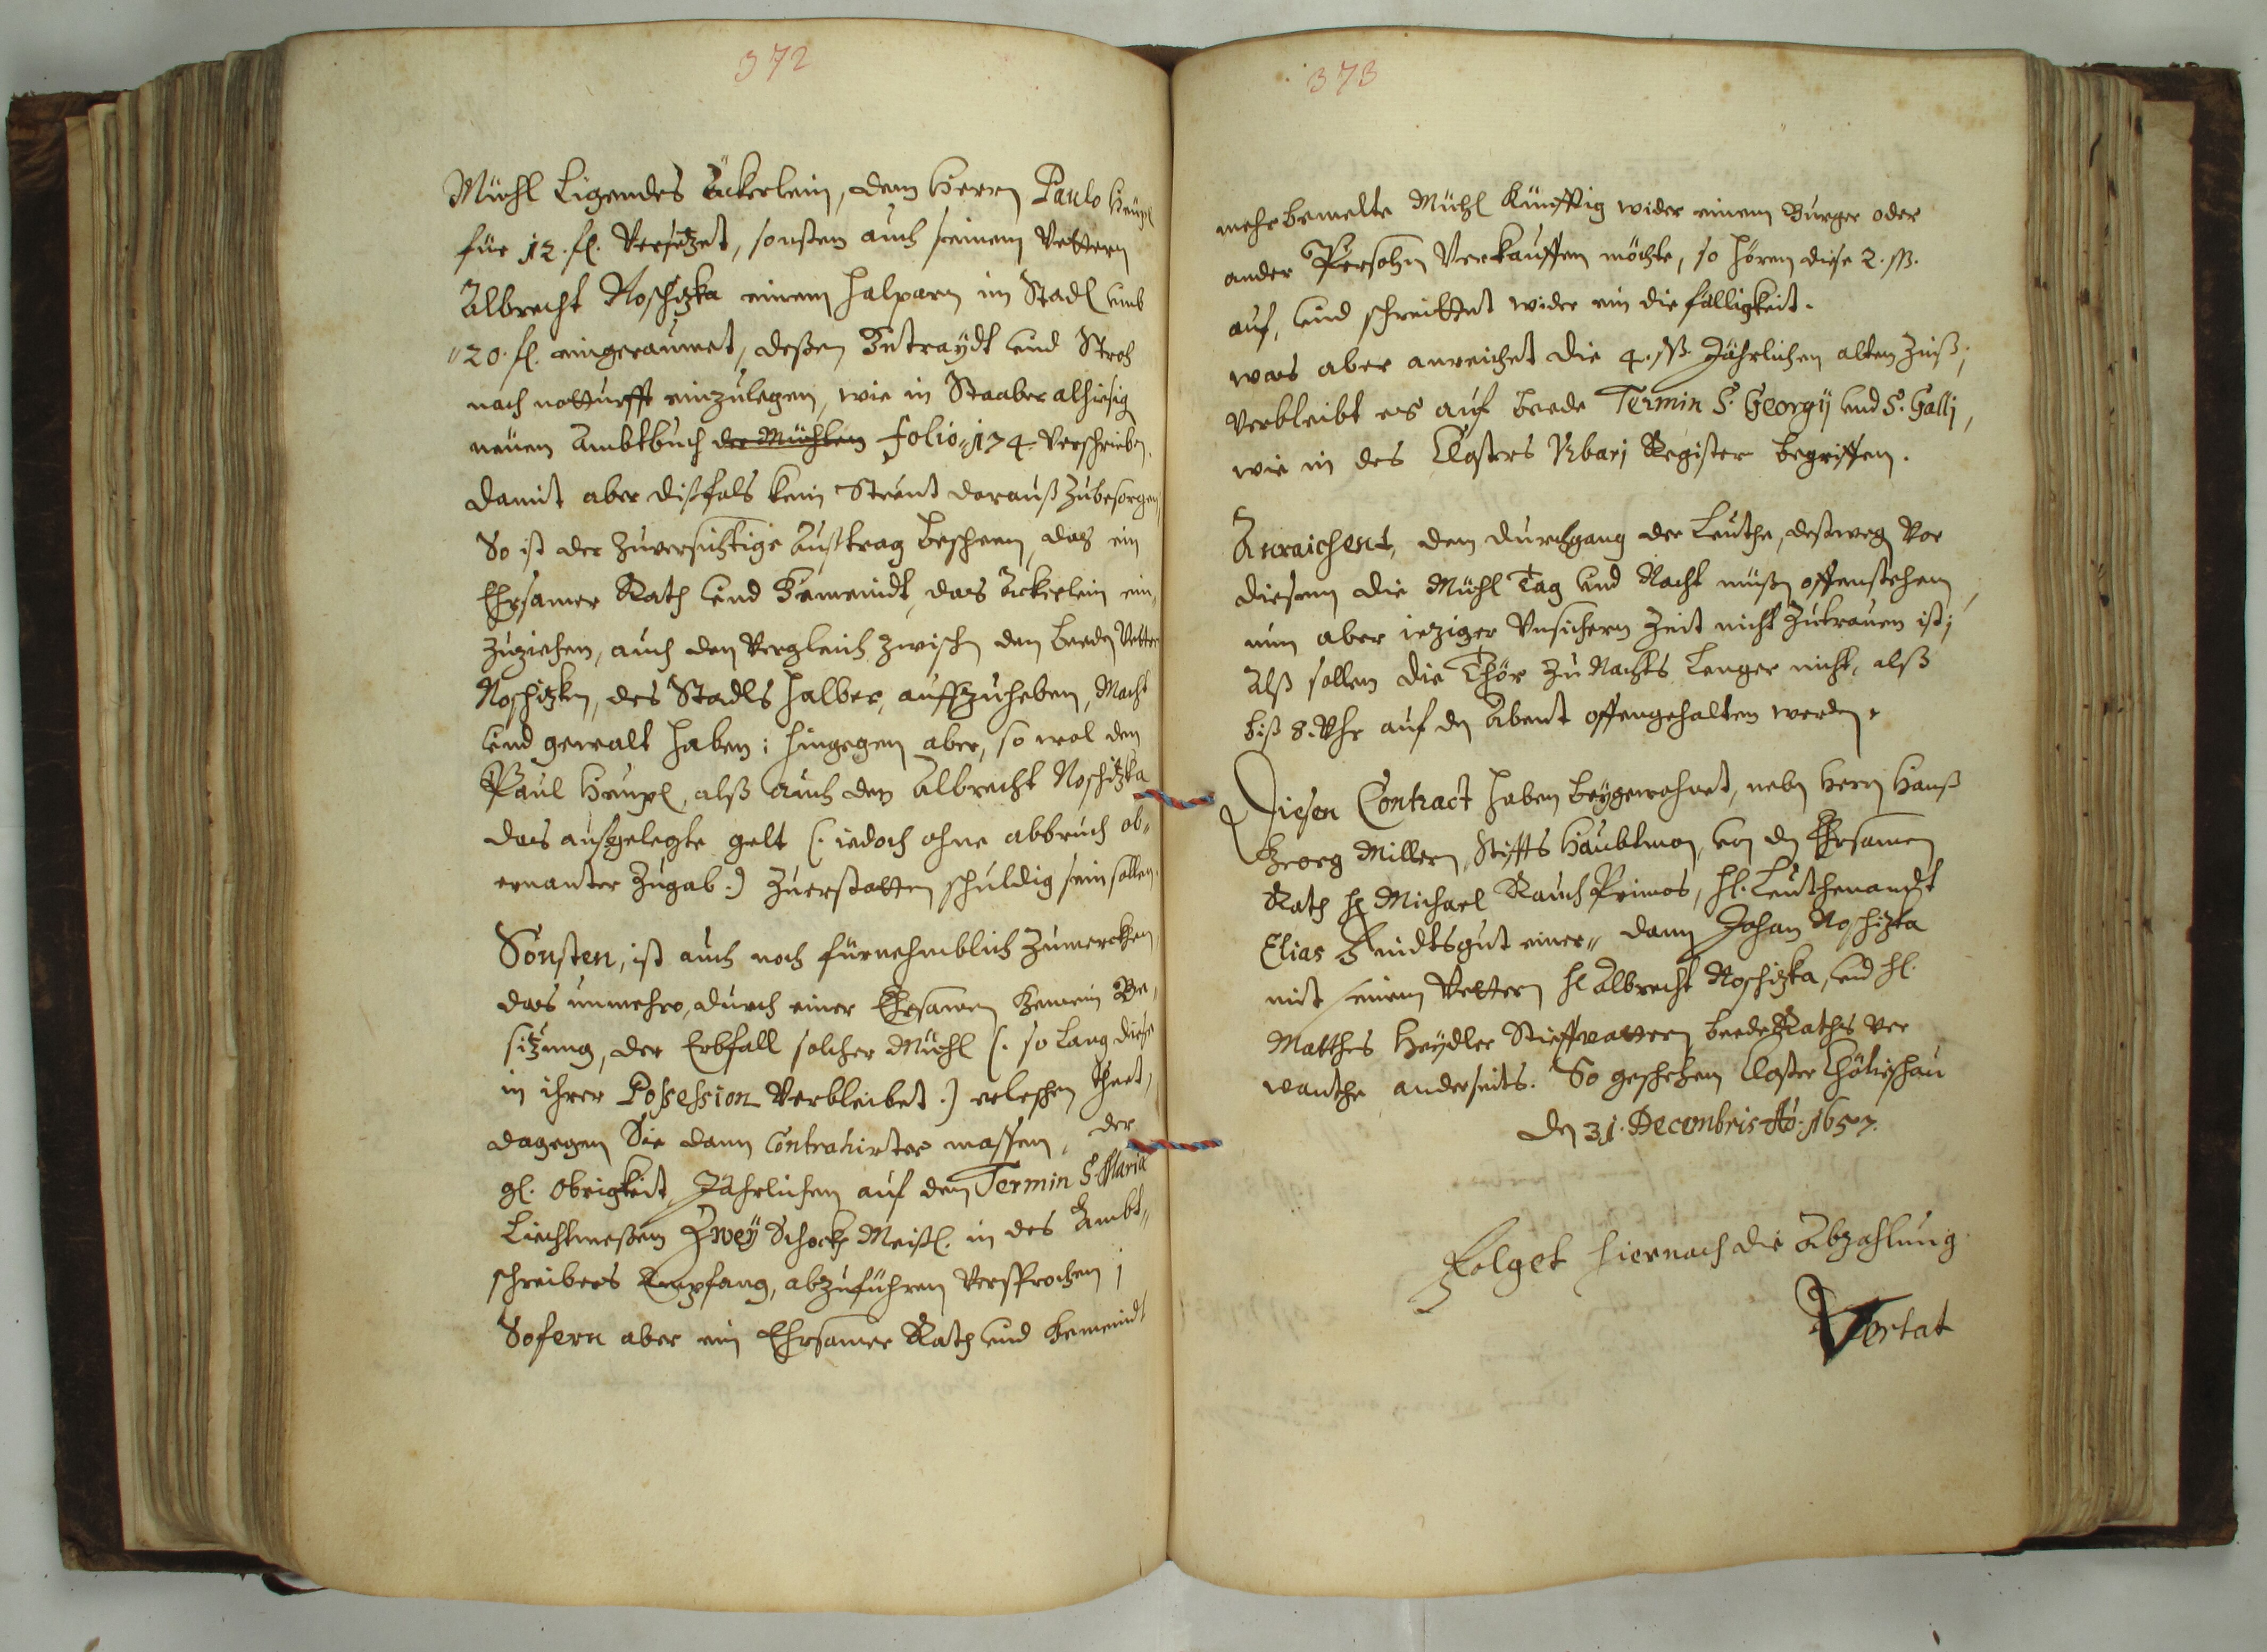 372
Mühl Ligendes Äckerlein, dem Herrn Paulo Heüpl
für 12. fl. Versetzet, sonsten auch seinem Vettern
Albrecht Noschitzka einem halparn im Stadl umb
20. fl. eingeraumet, deßen Getraydt und Stroh
nach notturfft einzulegen, wie in Staaber alhiesig
neüem Ambtbuch der Mühlen folio 174. Verschrieben.
Damit aber dißfals kein Streit darauß zubesorgen,
So ist der zuversichtige Außtrag beschehen, das ein
Ehrsamer Rath und Gemeindt, das Äckerlein ein,
zuziehen, auch den Vergleich zwischen den beeden Vetter
Noschitzken, des Stadls halber, auffzuheben, Macht
und gewalt haben; hingegen aber, so wol dem
Paul Heüpl, alß auch dem Albrecht Noschitzka
das außgelegte gelt (: iedoch ohne abbruch ob„
ernanter Zugab :) zuerstatten schuldig sein sollen.
Sonsten, ist auch noch fürnehmblich zumercken,
das nunmehro, durch einer Ehrsamen Gemein Be„
sitzung, der Erbfall solcher Mühl (: so lang diese
in ihrer Possession Verbleibet :) erleschen thuet,
dagegen Sie dann Contrahirter massen, der
gl. Obrigkeit Jährlichen auf den Termin S. Maria
Liechtmeßen Zwey Schock Meißl. in des Ambt„
schreibers Empfang, abzuführen Versprochen;
Sofern aber ein Ehrsamer Rath und Gemeindt
373
mehrbemelte Mühl künfftig wider einem Burger oder
ander Persohn Verkauffen möchte, so hören diese 2. ßß.
auf, und schreittet wider ein die fälligkeit.
was aber anreichet die 4. ßß. Jährlichen alten Zinß;
Verbleibt es auf beede Termin S. Georgij und S. Galli,
wie in des Closters Urbarj Register begriffen.
Anraichent, den durchgang der Leuthe, deßweg Vor
diesem die Mühl Tag und Nacht müßen offenstehen,
nun aber ieziger Unsichern Zeit nicht Zutrauen ist;
Alß sollen die Thör zu Nachts Lenger nicht, alß
biß 8. Uhr auf den Abent offengehalten werden.
Diesen Contract haben beygewohnet, neben Herrn Hanß
Georg Millern, Stiffts Haubtman, von den Ehrsamen
Rath H. Michael Rauch Primas, H. Leuthenandt
Elias Kindtsgut einer„ dann Johan Noschitzka
mit seinem Vettern H. Albrecht Noschitzka, und H.
Matthes Heydler Stieffvattern beede Raths Ver
wanthe anderseits. So geschehen Closter Chötischau
den 31. Decembris Ao. 1657.
Folget hiernach die Abzahlung
Vertat